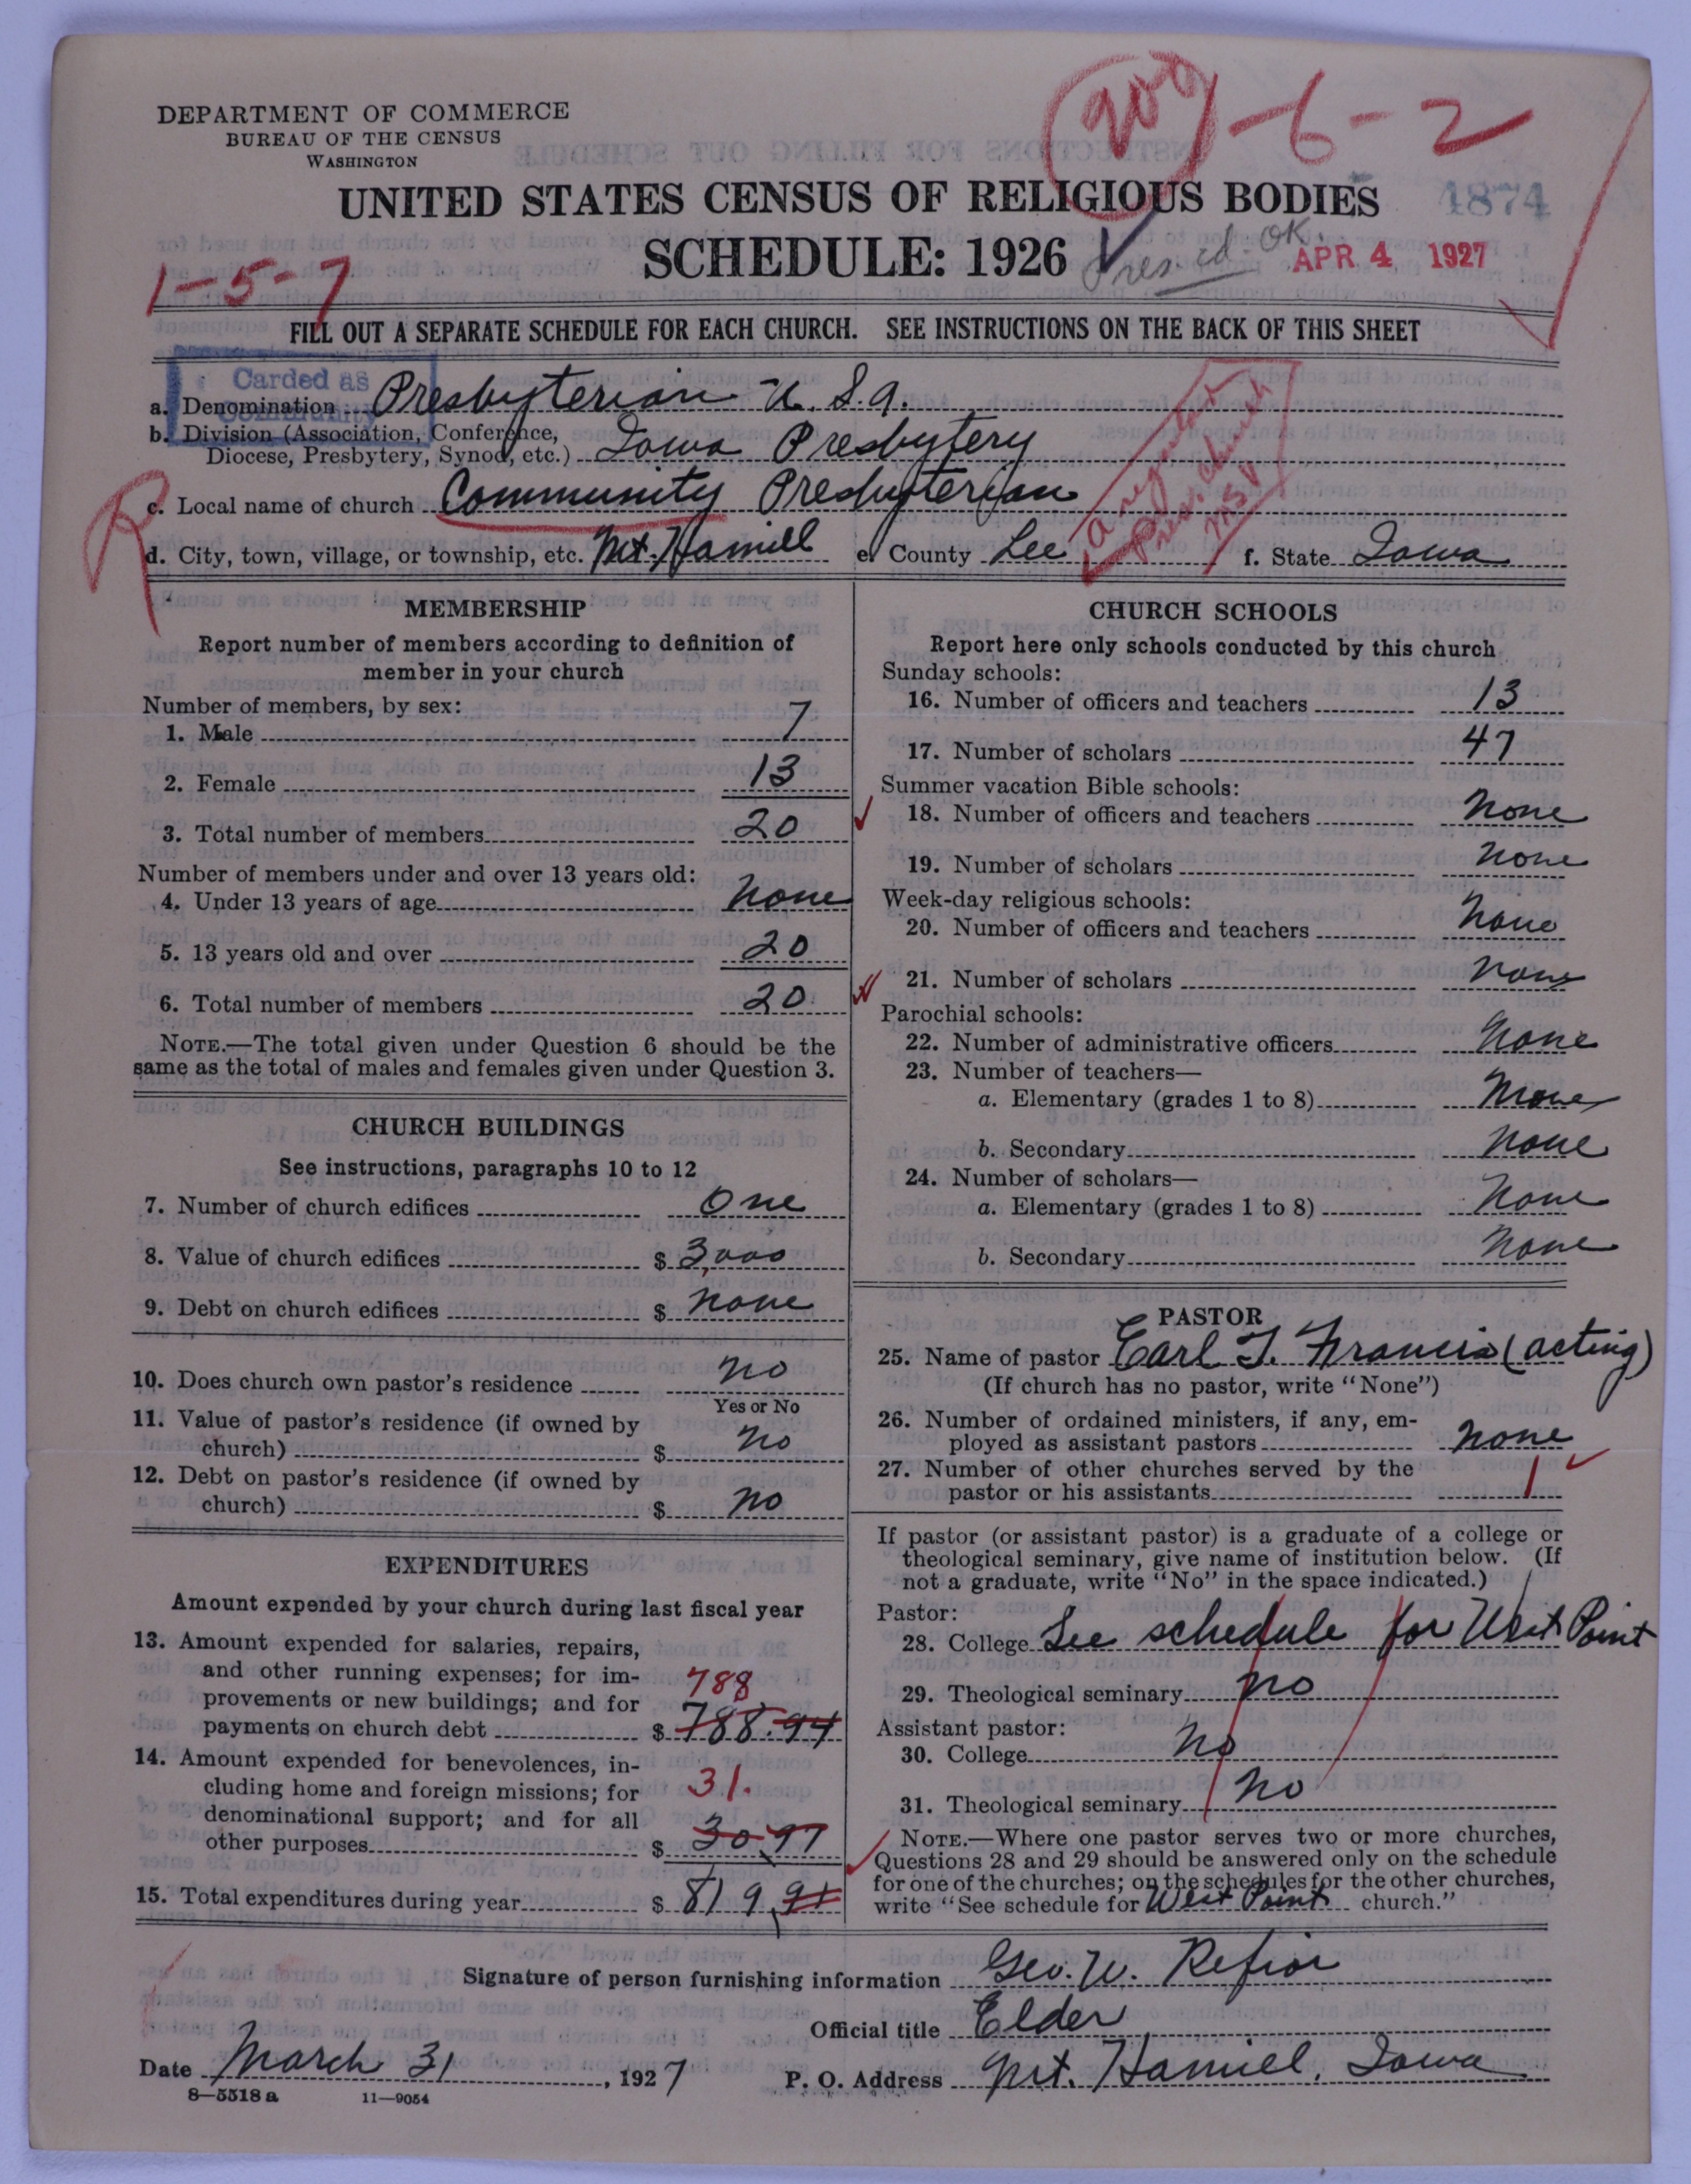 DEPARTMENT OF COMMERCE
BUREAU OF THE CENSUS
WASHINGTON
209 - 6 - 2
UNITED STATES CENSUS OF RELIGIOUS BODIES
1874
SCHEDULE: 1926
Pres. ed. OK.
APR 4 1927
1-5-7
FILL OUT A SEPARATE SCHEDULE FOR EACH CHURCH. SEE INSTRUCTIONS ON THE BACK OF THIS SHEET
Carded as
Community
a. Denomination Presbyterian U. S. a.
b. Division (Association, Conference,
Diocese, Presbytery, Synod, etc.) Iowa Presbytery
R
c. Local name of church Community Presbyterian
a regular
Pres. church
d. City, town, village, or township, etc. Mt. Hamill e. County Lee f. State Iowa
MEMBERSHIP
Report number of members according to definition of
member in your church
Number of members, by sex:
1. Male 7
2. Female 13
3. Total number of members 20
Number of members under and over 13 years old:
4. Under 13 years of age None
5. 13 years old and over 20
6. Total number of members 20
NOTE.—The total given under Question 6 should be the
same as the total of males and females given under Question 3.
CHURCH BUILDINGS
See instructions, paragraphs 10 to 12
7. Number of church edifices One
8. Value of church edifices $ 3,000
9. Debt on church edifices $ None
10. Does church own pastor's residence No
Yes or No
11. Value of pastor's residence (if owned by
church) $ No
12. Debt on pastor's residence (if owned by
church) $ No
EXPENDITURES
Amount expended by your church during last fiscal year
13. Amount expended for salaries, repairs,
and other running expenses; for im-
provements or new buildings; and for
788
payments on church debt $ 788.94
14. Amount expended for benevolences, in-
cluding home and foreign missions; for
31.
denominational support; and for all
other purposes $ 30.97
15. Total expenditures during year $ 819.91
CHURCH SCHOOLS
Report here only schools conducted by this church
Sunday schools:
16. Number of officers and teachers 13
17. Number of scholars 47
Summer vacation Bible schools:
18. Number of officers and teachers None
19. Number of scholars None
Week-day religious schools:
20. Number of officers and teachers None
21. Number of scholars None
Parochial schools:
22. Number of administrative officers None
23. Number of teachers—
a. Elementary (grades 1 to 8) None
b. Secondary None
24. Number of scholars—
a. Elementary (grades 1 to 8) None
b. Secondary None
PASTOR
25. Name of pastor Earl T. Francis (acting)
(If church has no pastor, write "None")
26. Number of ordained ministers, if any, em-
ployed as assistant pastors None
27. Number of other churches served by the
pastor or his assistants 1
If pastor (or assistant pastor) is a graduate of a college or
theological seminary, give name of institution below. (If
not a graduate, write "No" in the space indicated.)
Pastor:
28. College See schedule for West Point
29. Theological seminary No
Assistant pastor:
30. College No
31. Theological seminary No
NOTE.—Where one pastor serves two or more churches,
Questions 28 and 29 should be answered only on the schedule
for one of the churches; on the schedules for the other churches,
write "See schedule for West Point church."
Signature of person furnishing information Geo. W. Refior
Official title Elder
Date March 31, 1927
P. O. Address Mt. Hamill, Iowa
8—5518a 11—9054